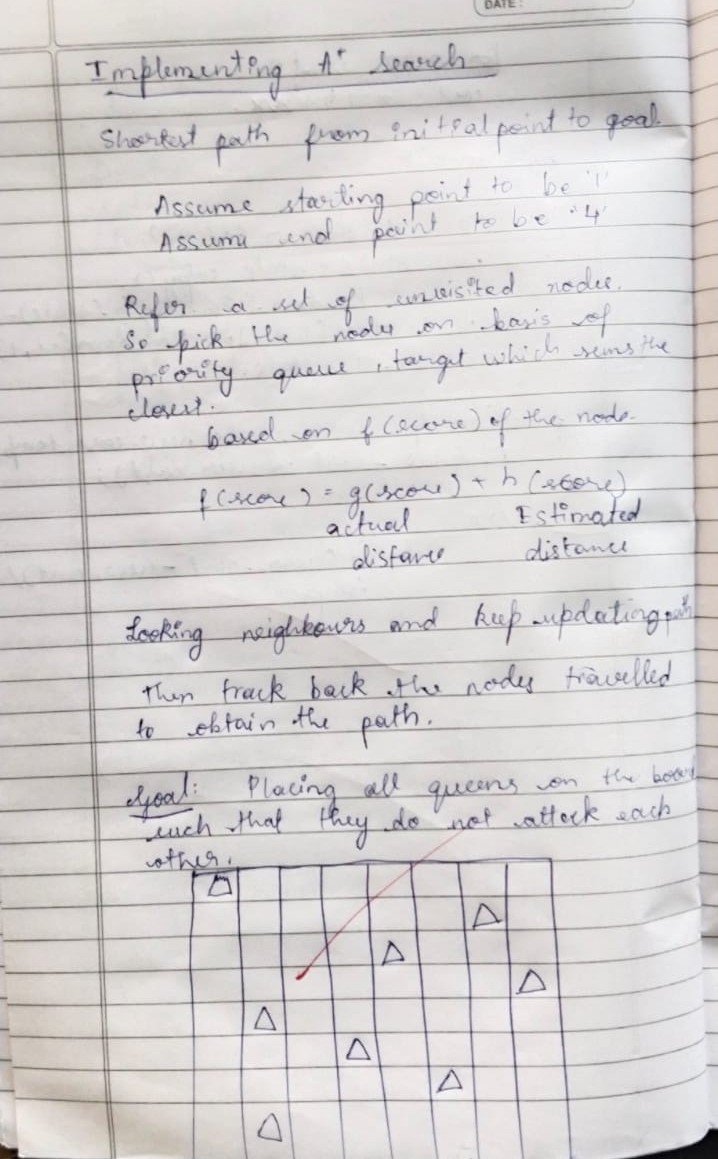 DATE:
Implementing A* search
Shortest path from initial point to goal.
Assume starting point to be '1'
Assume end point to be '4'
Refer a set of unvisited nodes.
So pick the nodes on basis of
priority queue, target which seems the
closest.
based on f(score) of the node.
f(score) = g(score) + h(score)
actual Estimated
distance distance
Looking neighbours and keep updating path
Then track back the nodes travelled
to obtain the path.
Goal: Placing all queens on the board
such that they do not attack each
other.